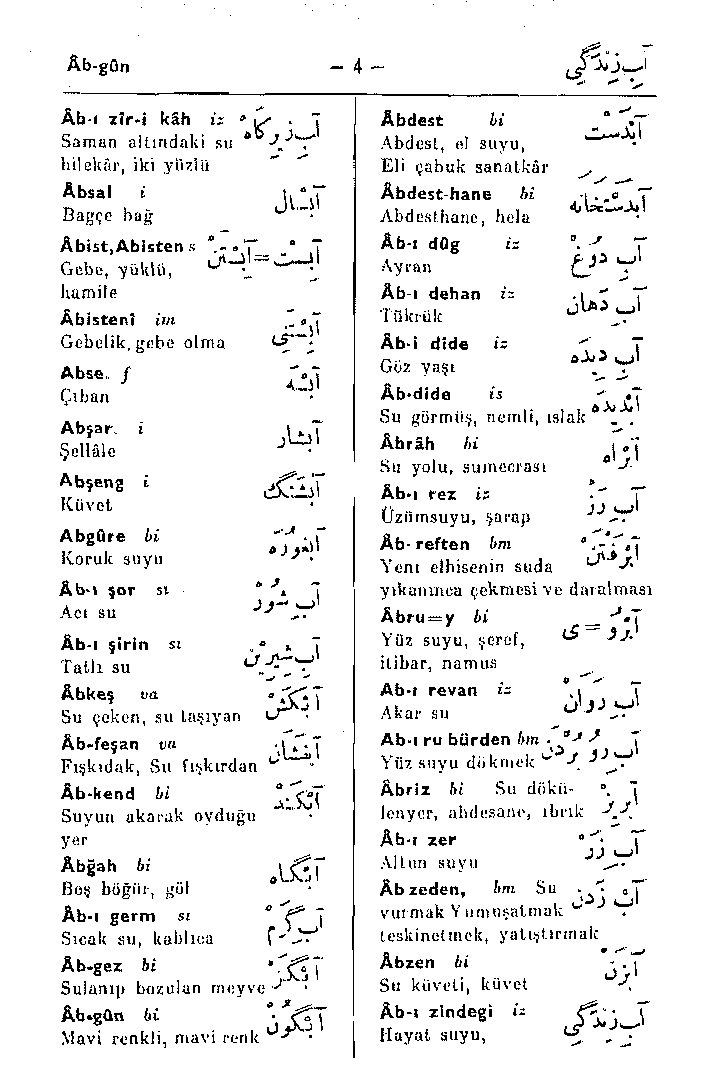 Âb-gûn — 4 — آبِ زِنْدَگِی
Âb-ı zîr-i kâh iz آبِ زیرِ کَاهْ
Saman altındaki su
hilekâr, iki yüzlü
Âbsal i آبْسَال
Bağçe bağ
Âbist,Abisten s آبِسْتْ=آبِسْتَنْ
Gebe, yüklü,
hamile
Âbistenî im آبِسْتَنِی
Gebelik, gebe olma
Abse. f آبْسَه
Çıban
Abşar. i آبْشَار
Şellâle
Abşeng i آبْشَنْگْ
Küvet
Abgûre bi آبْغُورَهْ
Koruk suyu
Âb-ı şor sı آبِ شُورْ
Acı su
Âb-ı şirin sı آبِ شِیرِینْ
Tatlı su
Âbkeş va آبْکَشْ
Su çeken, su taşıyan
Âb-feşan va آبْفَشَانْ
Fışkıdak, Su fışkırdan
Âb-kend bi آبْکَنْدْ
Suyun akarak oyduğu
yer
Âbğah bi آبْگَاهْ
Boş böğür, göl
Âb-ı germ sı آبِ گَرْمْ
Sıcak su, kablıca
Âb-gez bi آبْگَزْ
Sulanıp bozulan meyve
Âb-gûn bi آبْگُونْ
Mavi renkli, mavi renk
Âbdest bi آبْدَسْتْ
Abdest, el suyu,
Eli çabuk sanatkâr
Âbdest-hane bi آبْدَسْتْخَانَه
Abdesthane, hela
Âb-ı dûg iz آبِ دُوغْ
Ayran
Âb-ı dehan iz آبِ دَهَان
Tükrük
Âb-i dide iz آبِ دِیدَه
Göz yaşı
Âb-dide is آبْدِیدَه
Su görmüş, nemli, ıslak
Âbrâh bi آبْرَاه
Su yolu, sumecrası
Âb-ı rez iz آبِ رَزْ
Üzümsuyu, şarap
Âb-reften bm آبْرَفْتَنْ
Yeni elbisenin suda
yıkanınca çekmesi ve daralması
Âbru=y bi آبْرُو = ی
Yüz suyu, şeref,
itibar, namus
Ab-ı revan iz آبِ رَوَانْ
Akar su
Ab-ı ru bürden bm آبِ رُو بُرْدَنْ
Yüz suyu dökmek
Âbriz bi Su dökü- آبْرِیزْ
lenyer, abdesane, ibrik
Âb-ı zer آبِ زَرْ
Altun suyu
Âb zeden, bm Su آبْ زَدَنْ
vurmak Yumuşatmak
teskinetmek, yatıştırmak
Âbzen bi آبْزَنْ
Su küveti, küvet
Âb-ı zindegi iz آبِ زِنْدَگِی
Hayat suyu,